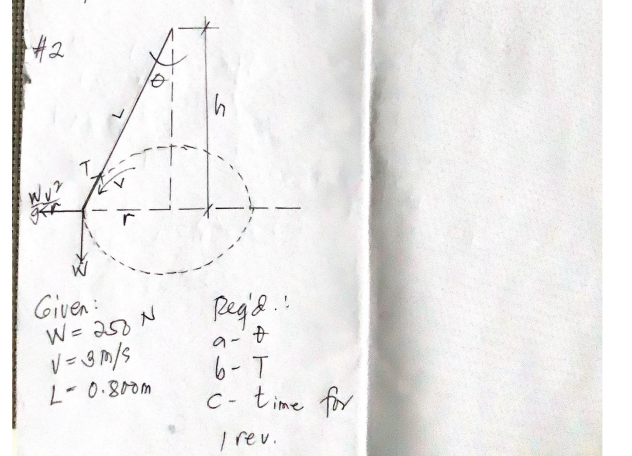 #2
θ
L
h
T
v
Wv²
gr
r
W
Given:
W = 250 N
V = 3 m/s
L = 0.800m
Req'd.:
a - θ
b - T
c - time for
1 rev.